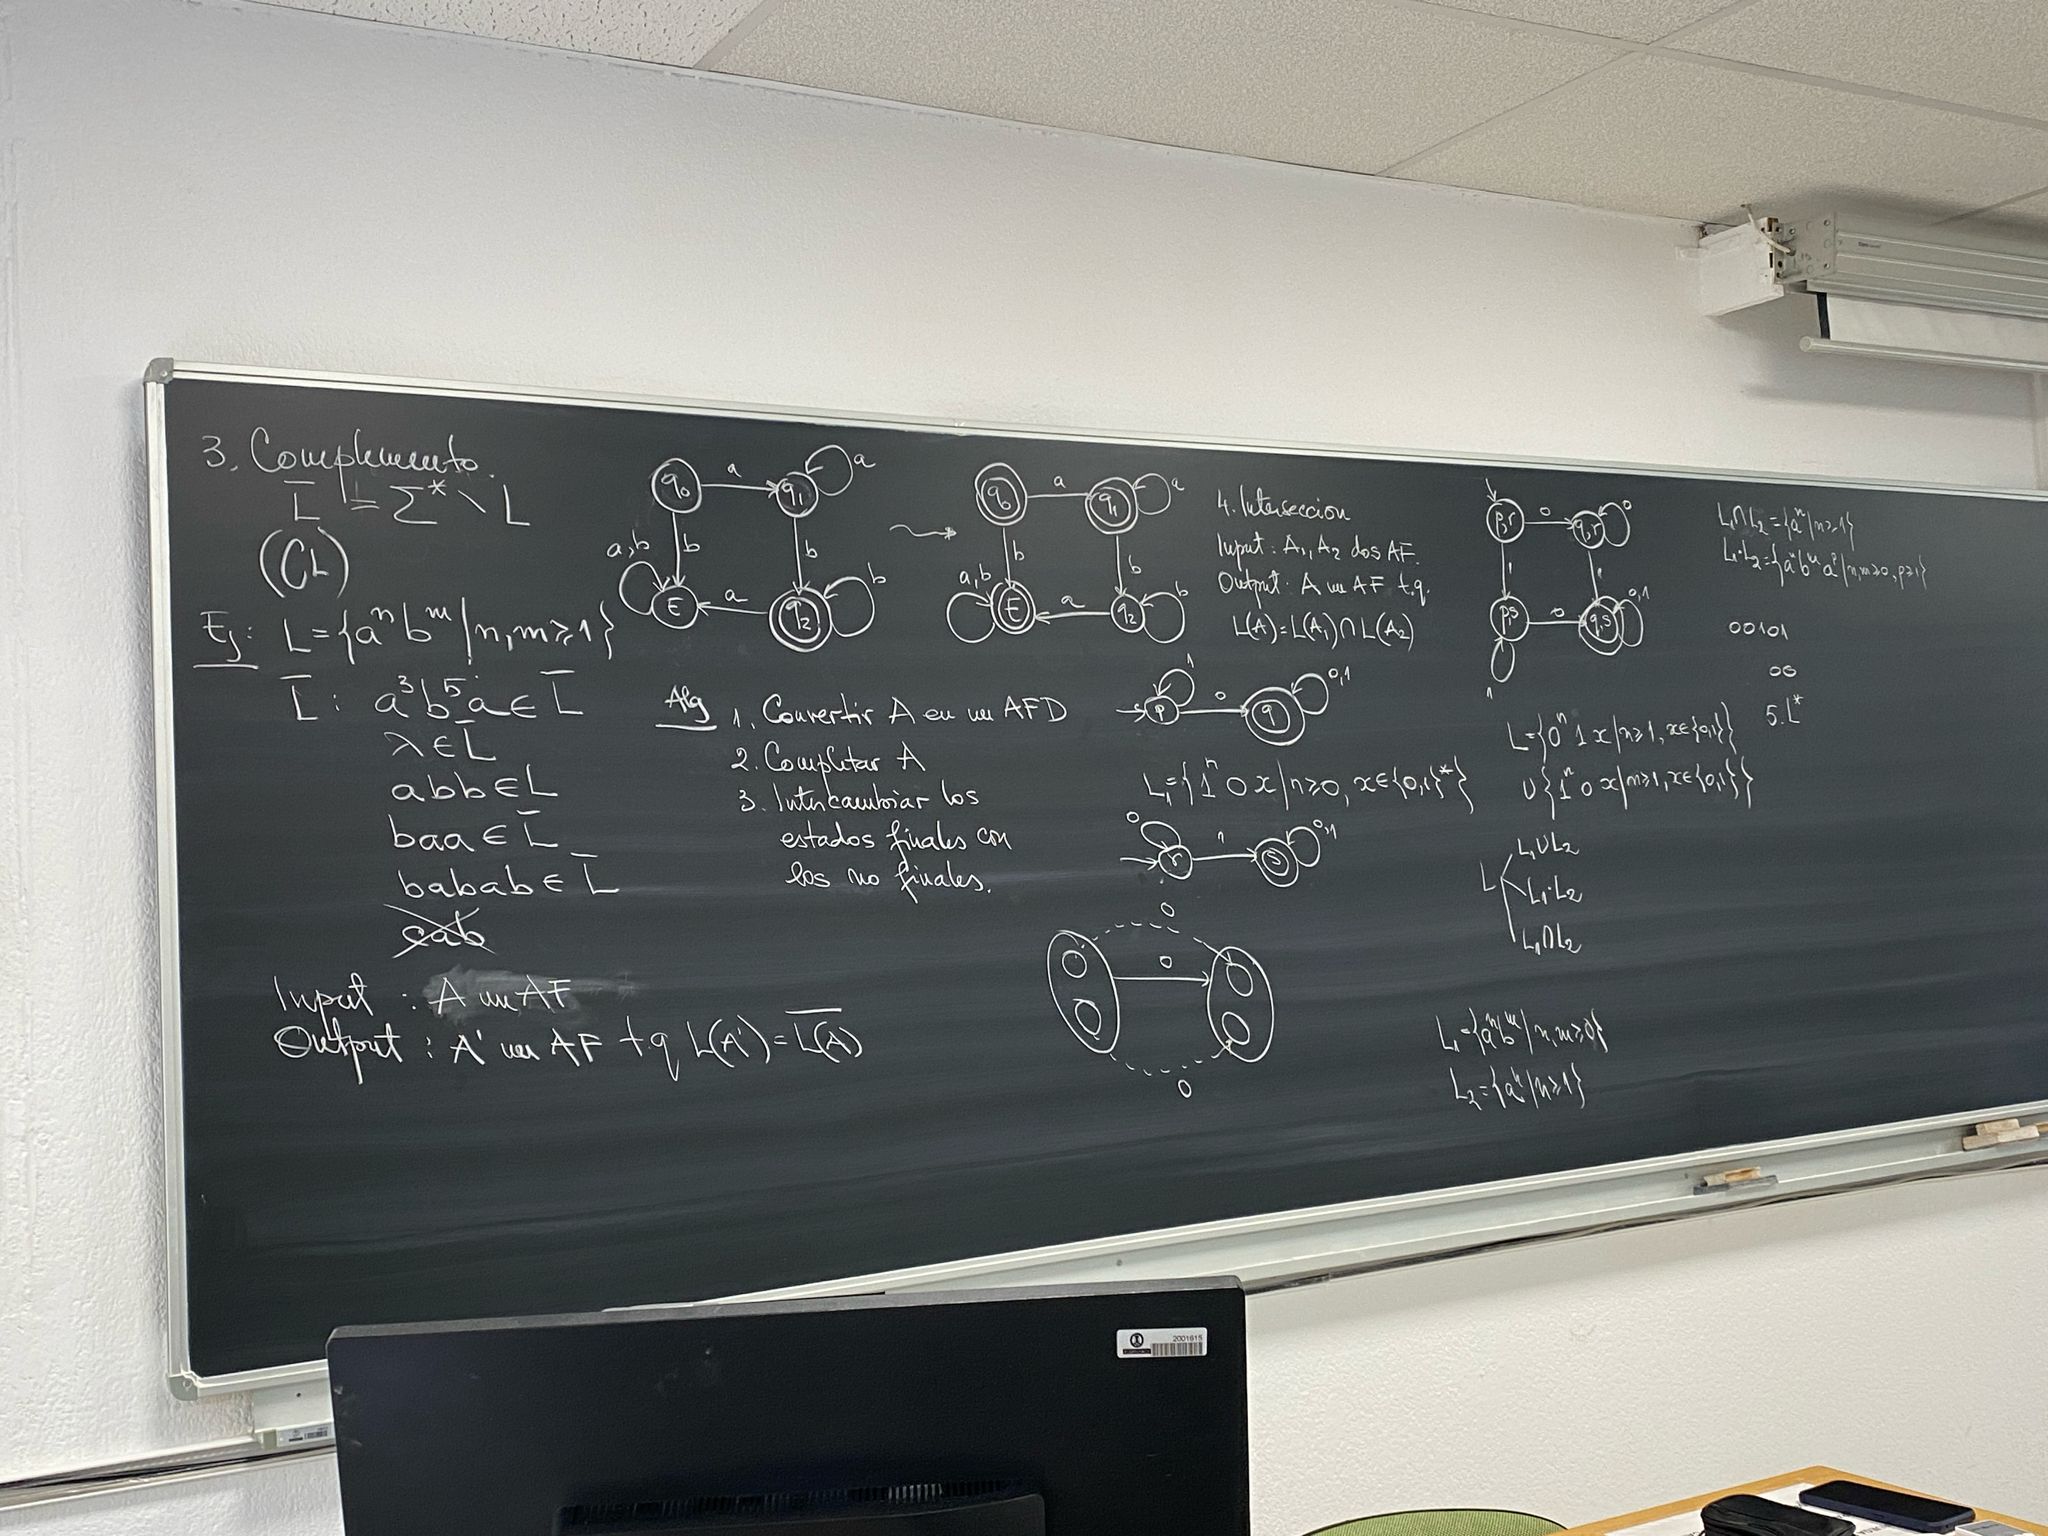 3. Complemento.
L̅ = Σ* \ L
(CL)
Ej: L={aⁿbᵐ | n,m≥1}
L̅ : a³b⁵a ∈ L̅
λ ∈ L̅
abb ∈ L
baa ∈ L̅
babab ∈ L̅
cab
Input : A un AF
Output : A' un AF t.q L(A')=L̅(̅A̅)̅
q₀ a q₁ a
a,b b b
E a q₂ b
q₀ a q₁ a
a,b b b
E a q₂ b
Alg 1. Convertir A en un AFD
2. Completar A
3. Intercambiar los
estados finales con
los no finales.
4. Intersección
Input: A₁, A₂ dos AF.
Output: A un AF t.q.
L(A)=L(A₁)∩L(A₂)
1 0,1
p 0 q
L₁={1ⁿ0x | n≥0, x∈{0,1}*}
0 0,1
r 1 s
0
0
0
p,r 0 q,r 0
1 1
p,s 0 q,s 0,1
1
L={0ⁿ1x | n≥1, x∈{0,1}}
∪{1ⁿ0x | m≥1, x∈{0,1}}
L₁∪L₂
L L₁·L₂
L₁∩L₂
L₁={aⁿbᵐ | n,m≥0}
L₂={aⁿ | n≥1}
L₁∩L₂={aⁿ | n≥1}
L₁·L₂={aⁿbᵐaᵖ | n,m≥0, p≥1}
00101
00
5. L*
2001615